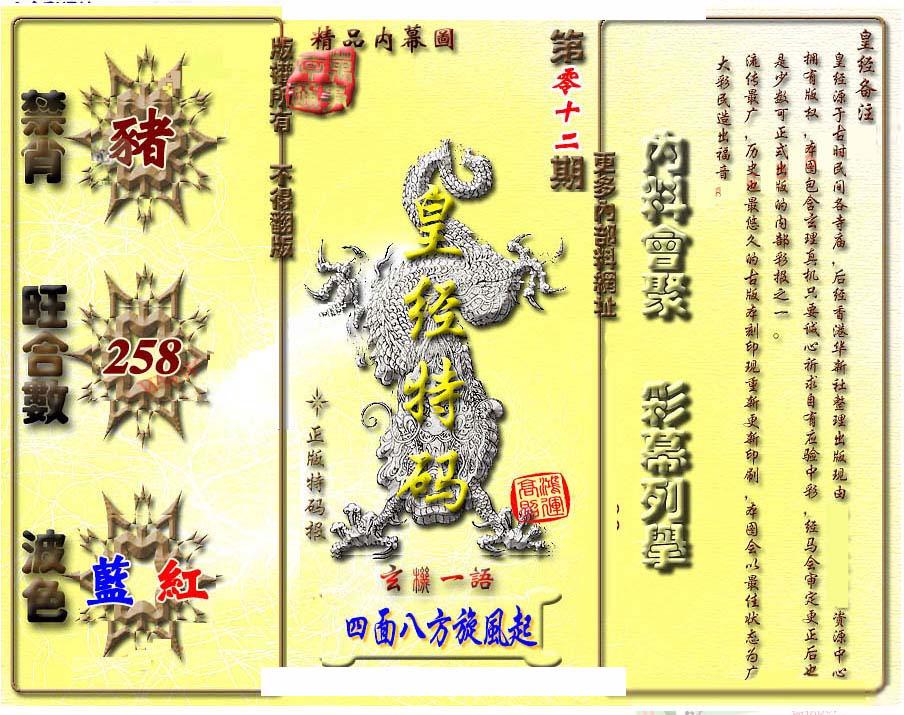 精品內幕圖
第零十二期
版權所有 不得翻版
更多內部料網址
禁肖
豬
旺合數
258
波色
藍 紅
皇经特码
正版特码报
鴻運高照
玄機一語
四面八方旋風起
內料會聚
彩幕列舉
皇经备注
皇经源于古时民间各寺庙,后经香港华新社整理出版现由 资源中心
拥有版权,本图包含玄理真机只要诚心祈求自有应验中彩,经马会审定更正后也
是少数可正式出版的内部彩报之一。
流传最广,历史也最悠久的古版本刻印现重新更新印刷,本图会以最佳状态为广
大彩民造出福音